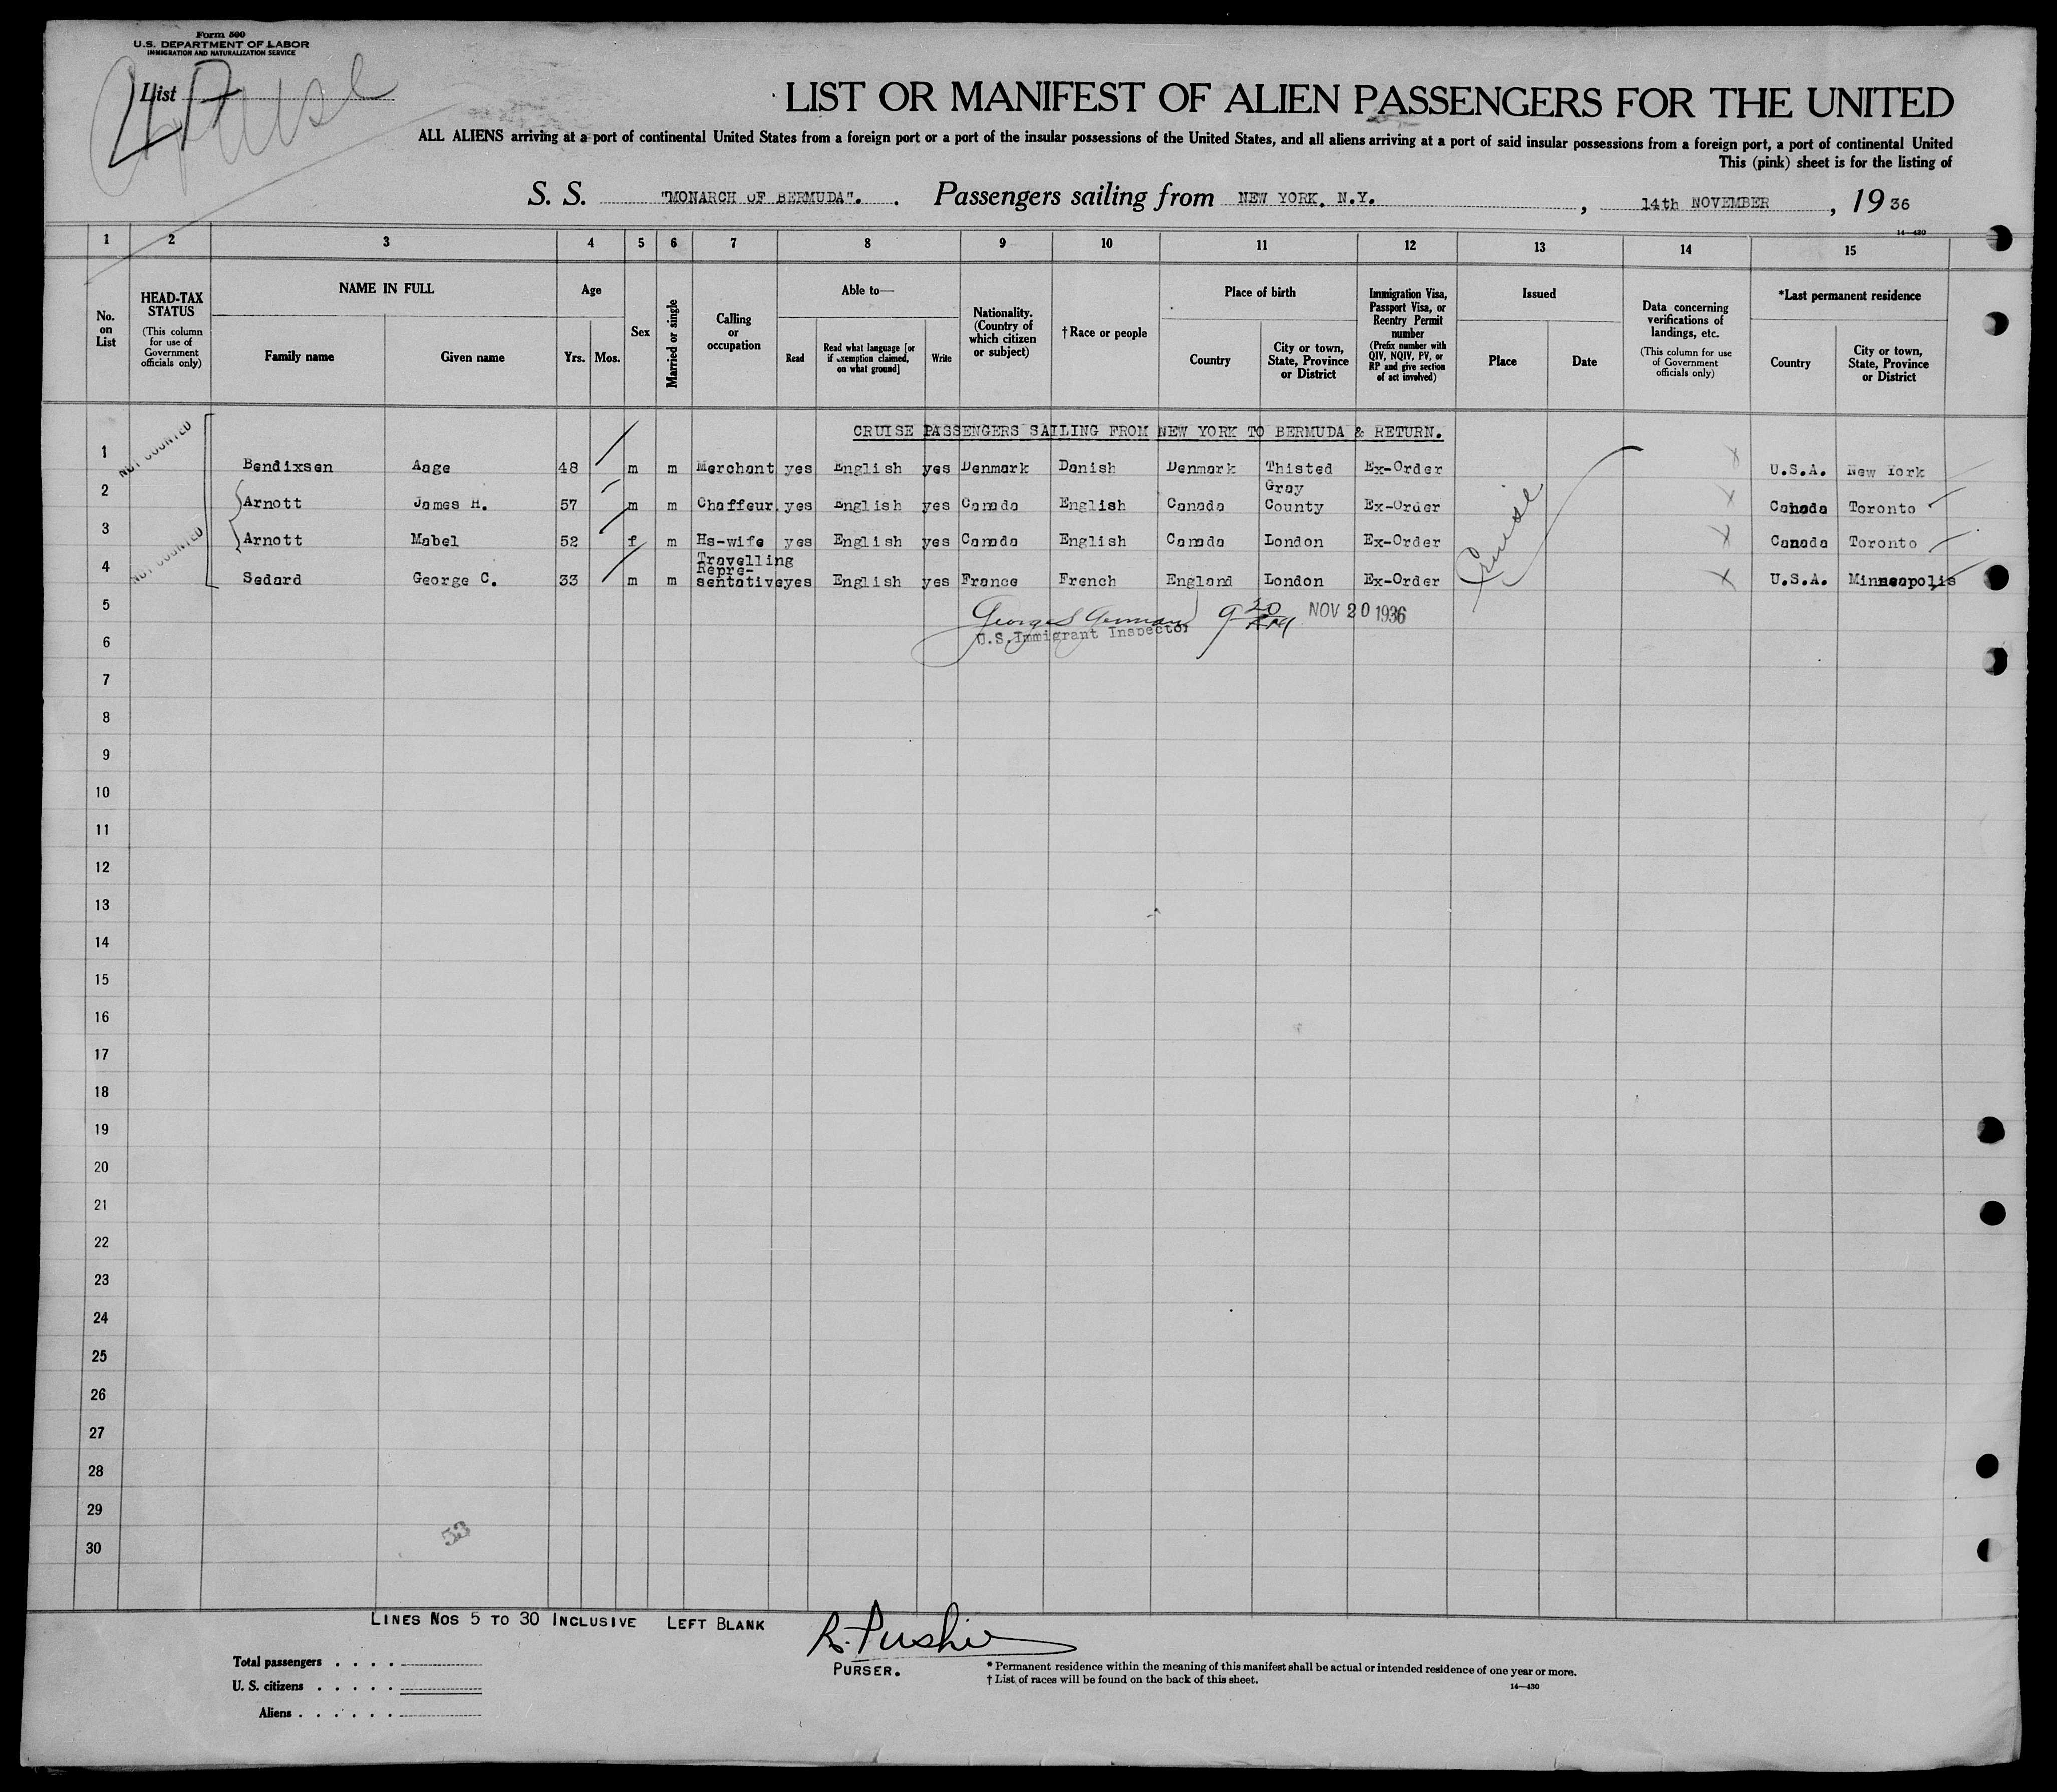 Form 500
U.S. DEPARTMENT OF LABOR
IMMIGRATION AND NATURALIZATION SERVICE
List 4A
Cruise
LIST OR MANIFEST OF ALIEN PASSENGERS FOR THE UNITED
ALL ALIENS arriving at a port of continental United States from a foreign port or a port of the insular possessions of the United States, and all aliens arriving at a port of said insular possessions from a foreign port, a port of continental United
This (pink) sheet is for the listing of
S. S. "MONARCH OF BERMUDA". Passengers sailing from NEW YORK. N.Y. , 14th NOVEMBER , 19 36
14—430
1 2 3 4 5 6 7 8 9 10 11 12 13 14 15
No. on List
HEAD-TAX STATUS
(This column for use of Government officials only)
NAME IN FULL
Family name Given name
Age
Yrs. Mos.
Sex
Married or single
Calling or occupation
Able to—
Read Read what language [or if exemption claimed, on what ground] Write
Nationality. (Country of which citizen or subject)
†Race or people
Place of birth
Country City or town, State, Province or District
Immigration Visa, Passport Visa, or Reentry Permit number
(Prefix number with QIV, NQIV, PV, or RP and give section of act involved)
Issued
Place Date
Data concerning verifications of landings, etc.
(This column for use of Government officials only)
*Last permanent residence
Country City or town, State, Province or District
CRUISE PASSENGERS SAILING FROM NEW YORK TO BERMUDA & RETURN.
NOT COUNTED
1 Bendixsen Aage 48 m m Merchant yes English yes Denmark Danish Denmark Thisted Ex-Order U.S.A. New York
2 Arnott James H. 57 m m Chaffeur. yes English yes Canada English Canada Gray County Ex-Order Canada Toronto
3 Arnott Mabel 52 f m Hs-wife yes English yes Canada English Canada London Ex-Order Canada Toronto
NOT COUNTED
4 Sedard George C. 33 m m Travelling Repre-sentative yes English yes France French England London Ex-Order U.S.A. Minneapolis
Cruise
5
U.S. Immigrant Inspector NOV 20 1936
6
7
8
9
10
11
12
13
14
15
16
17
18
19
20
21
22
23
24
25
26
27
28
29
30
53
LINES NOS 5 TO 30 INCLUSIVE LEFT BLANK
R. Pushie
PURSER.
Total passengers . . . .
U. S. citizens . . . . .
Aliens . . . . . .
* Permanent residence within the meaning of this manifest shall be actual or intended residence of one year or more.
† List of races will be found on the back of this sheet.
14—430